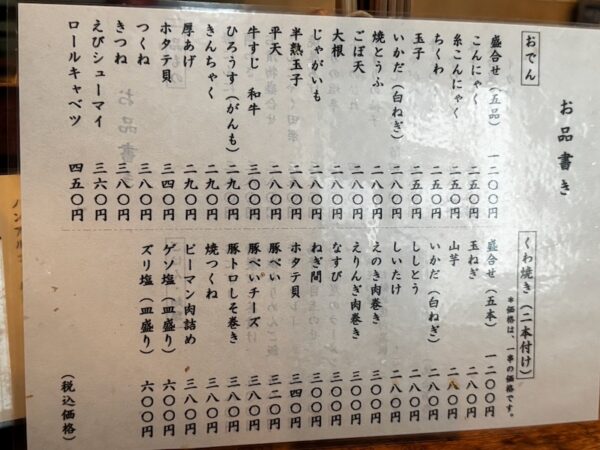 お品書き
おでん
盛合せ（五品） 一二〇〇円
こんにゃく 二五〇円
糸こんにゃく 二五〇円
ちくわ 二五〇円
玉子 二五〇円
いかだ（白ねぎ） 二八〇円
焼とうふ 二八〇円
ごぼ天 二八〇円
大根 二八〇円
じゃがいも 二八〇円
半熟玉子 二八〇円
平天 二八〇円
牛すじ 和牛 三〇〇円
ひろうす（がんも） 二九〇円
きんちゃく 二九〇円
厚あげ 二九〇円
ホタテ貝 三四〇円
つくね 三八〇円
きつね 三八〇円
えびシューマイ 三六〇円
ロールキャベツ 四五〇円
くわ焼き（二本付け）
＊価格は、一事の価格です。
盛合せ（五本） 一二〇〇円
玉ねぎ 二八〇円
山芋 二八〇円
いかだ（白ねぎ） 二八〇円
ししとう 二八〇円
しいたけ 二八〇円
えのき肉巻き 三〇〇円
えりんぎ肉巻き 三〇〇円
なすび 三〇〇円
ねぎ間 三〇〇円
ホタテ貝 三四〇円
豚ぺい 三二〇円
豚ぺいチーズ 三八〇円
豚トロしそ巻き 三八〇円
焼つくね 三八〇円
ピーマン肉詰め 三八〇円
ゲソ塩（皿盛り） 六〇〇円
ズリ塩（皿盛り） 六〇〇円
（税込価格）